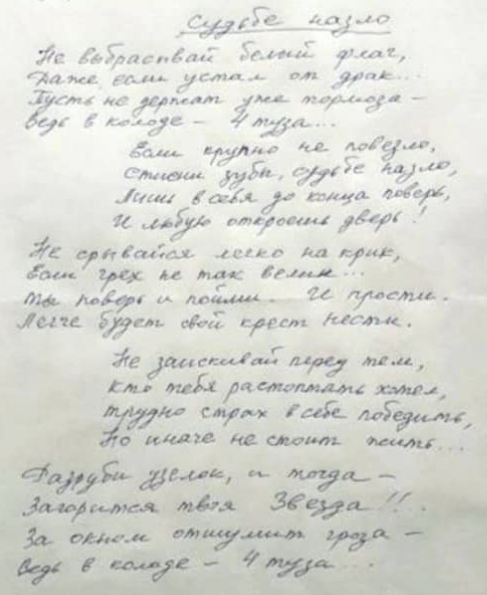 Судьбе назло
Не выбрасывай белый флаг,
Даже если устал от драк...
Пусть не держат уже тормоза –
Ведь в колоде – 4 туза...
Если крупно не повезло,
Стисни зубы, судьбе назло,
Лишь в себя до конца поверь,
И любую откроешь дверь!
Не срывайся легко на крик,
Если грех не так велик...
Ты поверь и пойми. И прости.
Легче будет свой крест нести.
Не заискивай перед тем,
Кто тебя растоптать хотел,
Трудно страх в себе победить,
Но иначе не стоит жить...
Разруби узелок, и тогда –
Загорится твоя Звезда!!.
За окном отшумит гроза –
Ведь в колоде – 4 туза...